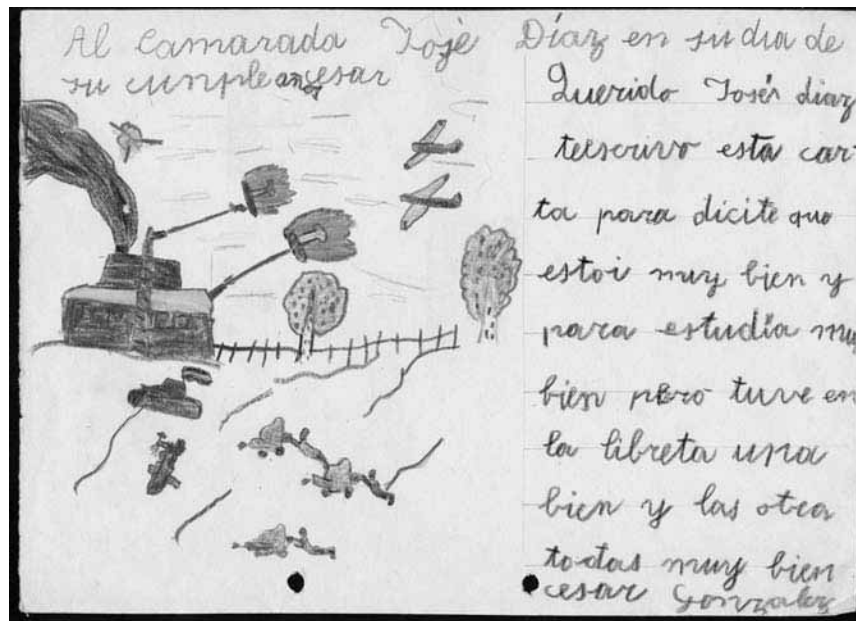 Al Camarada Jose Díaz en su dia de
su cumpleaños cesar
Querido José diaz
teescrivo esta car
ta para dicite que
estoi muy bien y
para estudia mu
bien pero tuve en
la libreta una
bien y las otra
todas muy bien
cesar Gonzalez